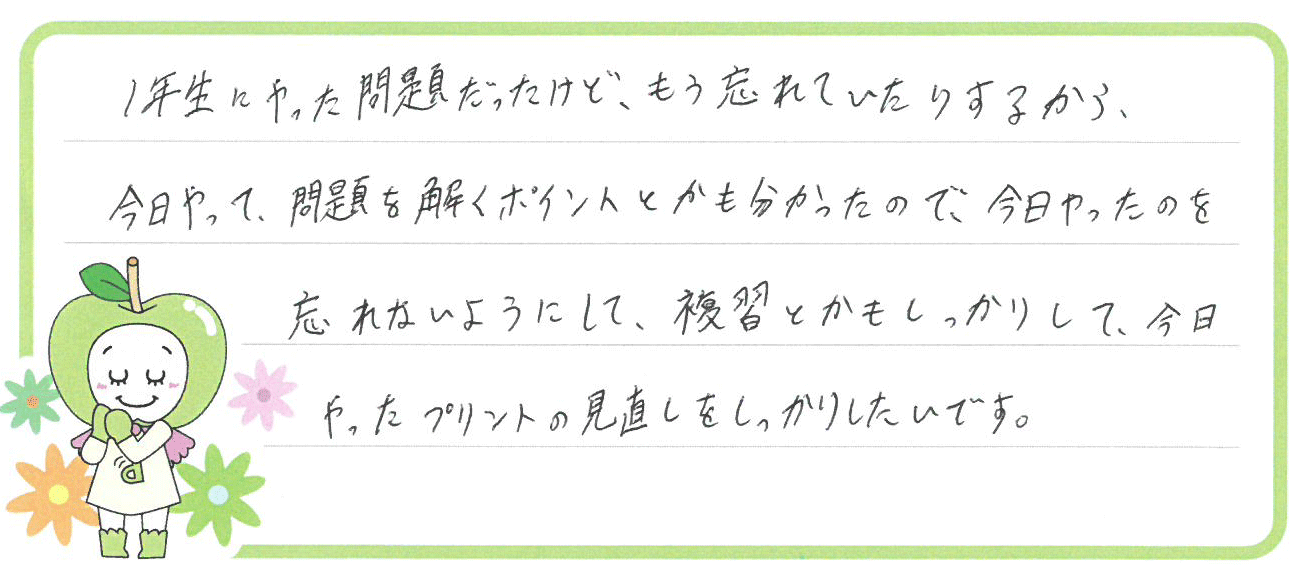 1年生にやった問題だったけど、もう忘れていたりするから、
今日やって、問題を解くポイントとかも分かったので、今日やったのを
忘れないようにして、複習とかもしっかりして、今日
やったプリントの見直しをしっかりしたいです。